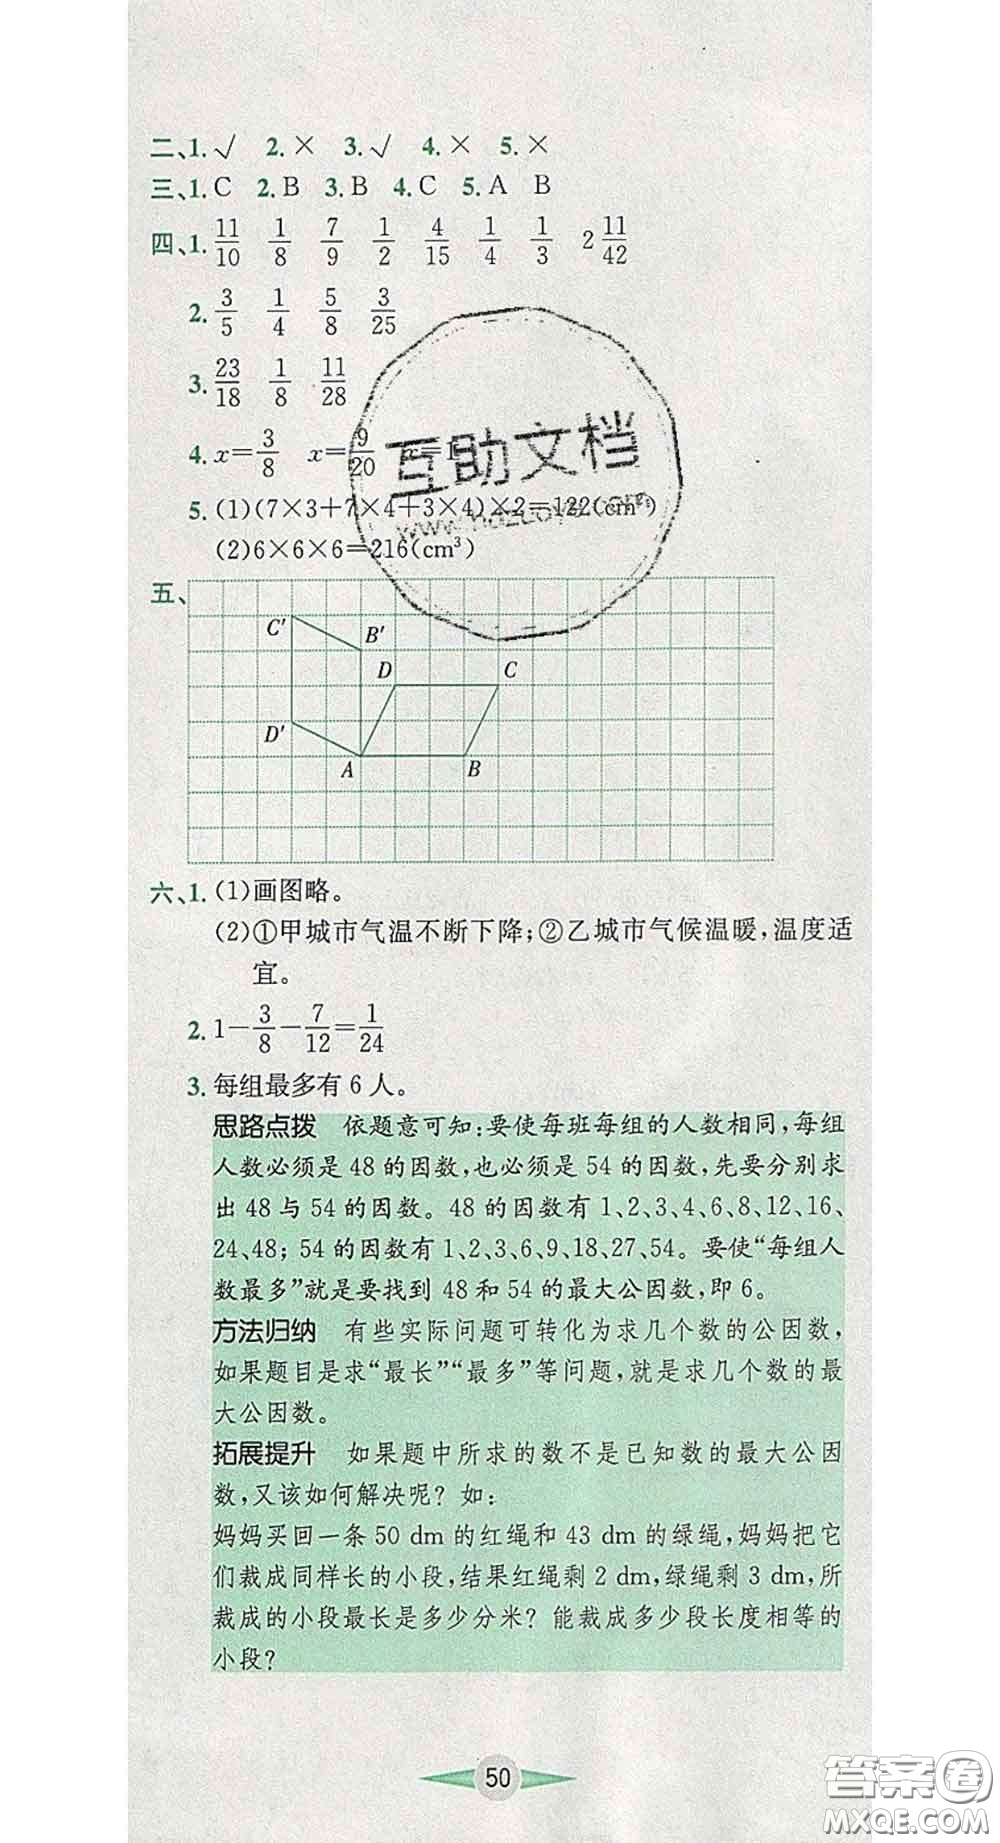 二、1. √ 2. × 3. √ 4. × 5. ×
三、1. C 2. B 3. B 4. C 5. A B
四、1. 11/10 1/8 7/9 1/2 4/15 1/4 1/3 2 11/42
2. 3/5 1/4 5/8 3/25
3. 23/18 1/8 11/28
4. x=3/8 x=9/20
5. (1)(7×3+7×4+3×4)×2=122(cm²)
(2)6×6×6=216(cm³)
互助文档
五、
C′ B′
D C
D′
A B
六、1. (1)画图略。
(2)①甲城市气温不断下降;②乙城市气候温暖,温度适
宜。
2. 1-3/8-7/12=1/24
3. 每组最多有 6 人。
思路点拨 依题意可知:要使每班每组的人数相同,每组
人数必须是 48 的因数,也必须是 54 的因数,先要分别求
出 48 与 54 的因数。48 的因数有 1、2、3、4、6、8、12、16、
24、48; 54 的因数有 1、2、3、6、9、18、27、54。要使“每组人
数最多”就是要找到 48 和 54 的最大公因数,即 6。
方法归纳 有些实际问题可转化为求几个数的公因数,
如果题目是求“最长”“最多”等问题,就是求几个数的最
大公因数。
拓展提升 如果题中所求的数不是已知数的最大公因
数,又该如何解决呢? 如:
妈妈买回一条 50 dm 的红绳和 43 dm 的绿绳,妈妈把它
们裁成同样长的小段,结果红绳剩 2 dm,绿绳剩 3 dm,所
裁成的小段最长是多少分米? 能裁成多少段长度相等的
小段?
50
答案卷
MXQE.COM